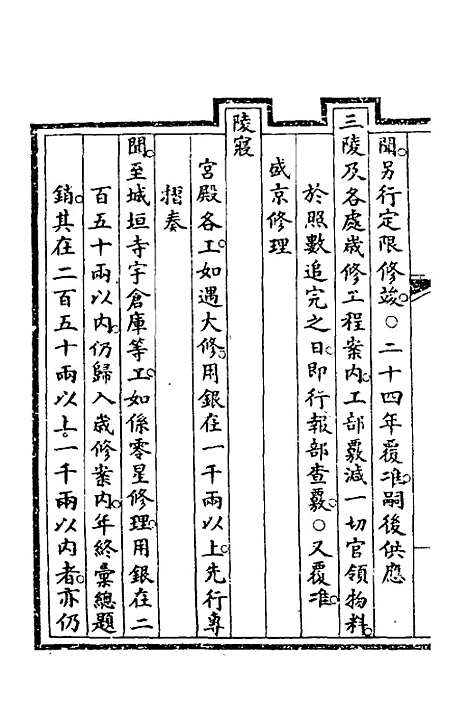 聞。另行定限修竣。○二十四年覆准。嗣後供應
三陵及各處歲修工程案內。工部覈減一切官領物料。
於照數追完之日。即行報部查覈。○又覆准。
盛京修理
陵寢
宮殿各工。如遇大修。用銀在一千兩以上。先行專
摺奏
聞。至城垣寺宇倉庫等工。如係零星修理。用銀在二
百五十兩以內。仍歸入歲修案內。年終彙總題
銷。其在二百五十兩以上。一千兩以內者。亦仍